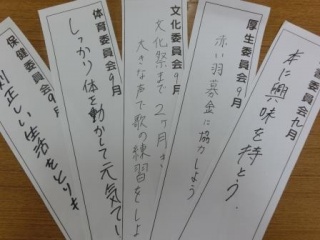 書委員会九月
本に興味を持とう
厚生委員会9月
赤い羽募金に協力しよう
文化委員会9月
文化祭まで2ヶ月
大きな声で歌の練習をしよ
体育委員会9月
しっかり体を動かして元気で
保健委員会9月
正しい生活をとりも